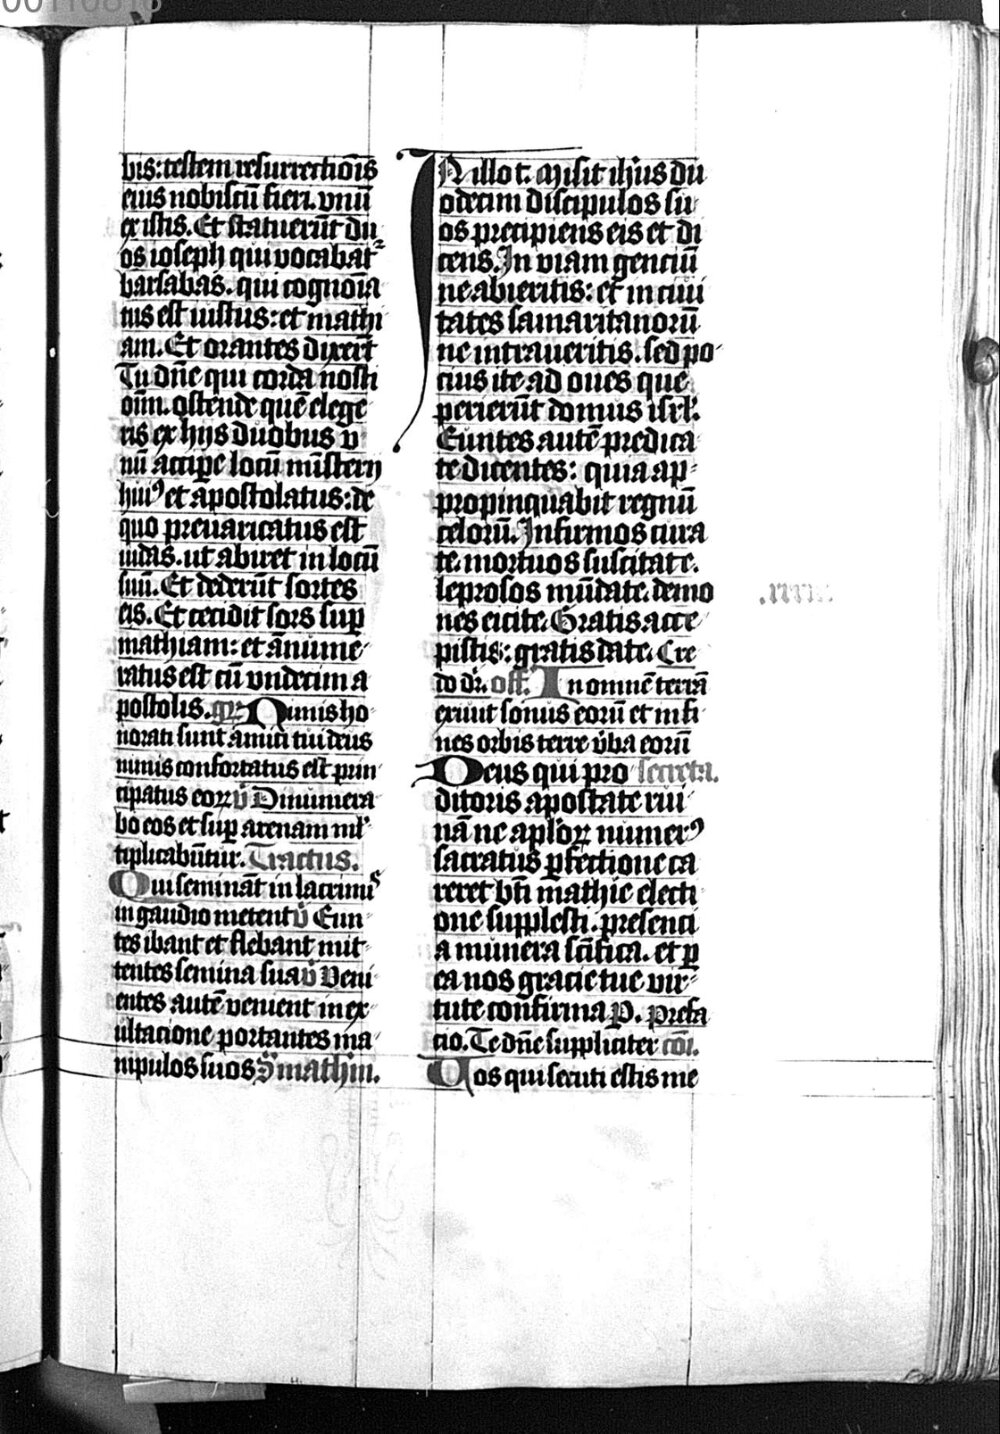 bis: testem resurrectiōis
eius nobiscū fieri. vnū
ex istis. Et statuerūt du
os ioseph qui vocabat᷑
barsabas. qui cognoīa
tus est iustus: et mathi
am. Et orantes dixerūt
Tu dn̄e qui corda nosti
oīm. ostende quē elege
ris ex hijs duobus v
nū accipe locū mīsterij
huiꝰ et apostolatus: de
quo preuaricatus est
iudas. ut abiret in locū
suū. Et dederūt sortes
eis. Et cecidit sors sup̄
mathiam: et ānume
ratus est cū vndecim a
postolis. gr̄. Nimis ho
norati sunt amici tui deus
nimis confortatus est prin
cipatus eoꝝ v̄ Dinumera
bo eos et sup̄ arenam ml̄
tiplicabūtur. Tractus.
Qui semināt in lacrimis
in gaudio metent v̄ Eun
tes ibant et flebant mit
tentes semina sua v̄ Veni
entes autē venient in ex
ultacione portantes ma
nipulos suos S mathm̄.
IN illo t. Misit ihūs du
odecim discipulos su
os precipiens eis et di
cens. In viam genciū
ne abieritis: et in ciui
tates samaritanorū
ne intraueritis. sed po
cius ite ad oues que
perierūt domus isrl̄.
Euntes autē predica
te dicentes: quia ap
propinquabit regnū
celorū. Infirmos cura
te. mortuos suscitate.
leprosos mūdate. demo
nes eicite. Gratis acce
pistis: gratis date. Cre
do dr̄. off. In omnē terrā
exiuit sonus eorū et in fi
nes orbis terre v̄ba eorū
Deus qui pro secreta.
ditoris apostate rui
nā ne apl̄oꝝ numerꝰ
sacratus ꝑfectione ca
reret bt̄i mathie electi
one supplesti. presenci
a munera sc̄ifica. et ꝑ
ea nos gracie tue vir
tute confirma P. Prefa
cio. Te dn̄e suppliciter cōi.
Vos qui secuti estis me